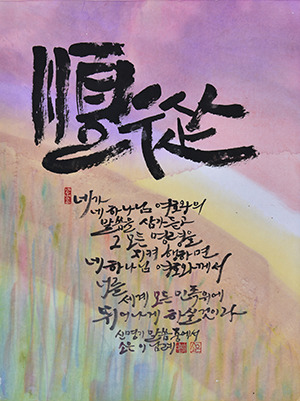 順
네가
네 하나님 여호와의
말씀을 삼가 듣고
그 모든 명령을
지켜 행하면
네 하나님 여호와께서
너를
세계 모든 민족 위에
뛰어나게 하실 것이라
신명기 말씀 중에서
소은 이남례